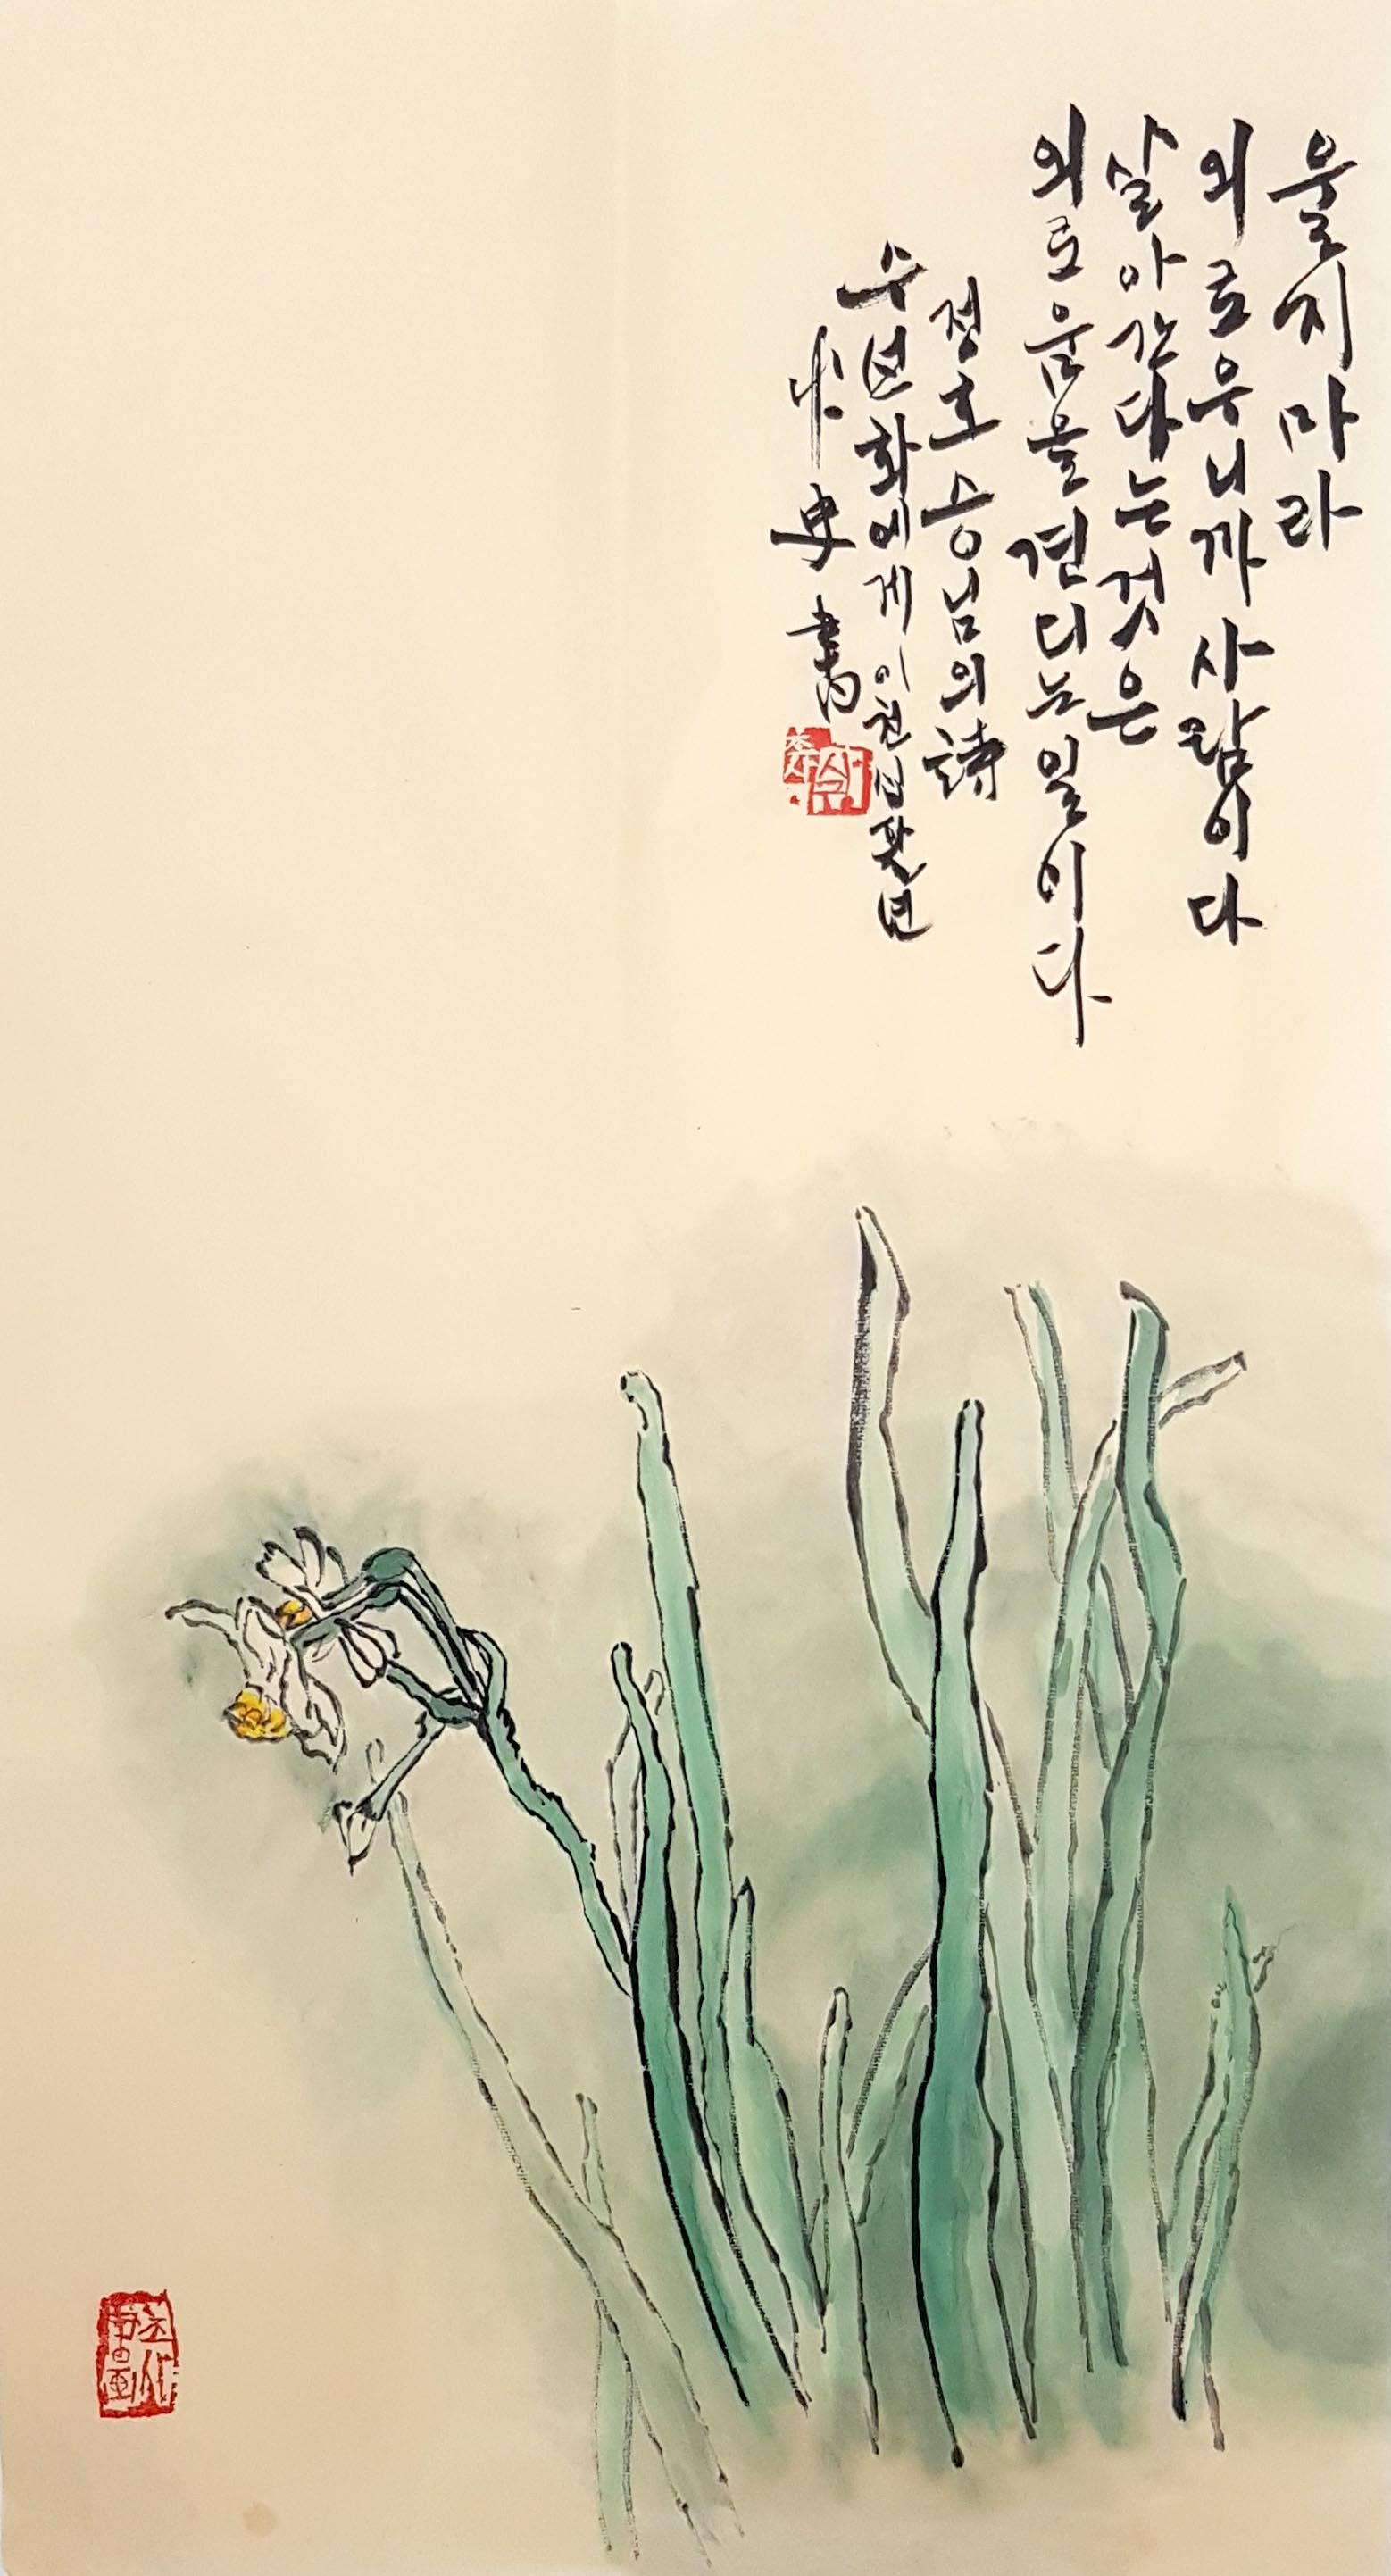 울지마라
외로우니까 사람이다
살아간다는것은
외로움을 견디는일이다
정호승님의 詩
수선화에게 이천십팔년
史 書